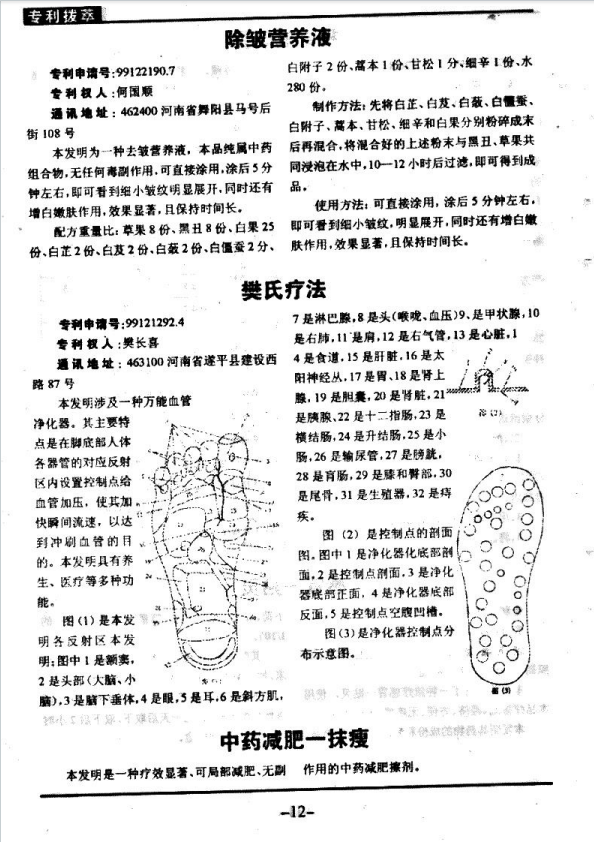 专利拔萃
除皱营养液
专利申请号:99122190.7
专利权人:何国顺
通讯地址:462400河南省舞阳县马号后
街108号
本发明为一种去皱营养液，本品纯属中药
组合物,无任何毒副作用,可直接涂用,涂后5分
钟左右,即可看到细小皱纹明显展开,同时还有
增白嫩肤作用,效果显著,且保持时间长。
配方重量比:草果8份、黑丑8份、白果25
份、白芷2份、白芨2份、白蔹2份、白僵蚕2分、
白附子2份、藁本1份、甘松1分、细辛1份、水
280份。
制作方法:先将白芷、白芨、白蔹、白僵蚕、
白附子、藁本、甘松、细辛和白果分别粉碎成末
后再混合,将混合好的上述粉末与黑丑、草果共
同浸泡在水中,10—12小时后过滤,即可得到成
品。
使用方法:可直接涂用，涂后5分钟左右,
即可看到细小皱纹,明显展开,同时还有增白嫩
肤作用,效果显著,且保持时间长。
樊氏疗法
专利申请号:99121292.4
专利权人:樊长喜
通讯地址:463100河南省遂平县建设西
路87号
本发明涉及一种万能血管
净化器。其主要特
点是在脚底部人体
各器管的对应反射
区内设置控制点给
血管加压，使其加
快瞬间流速，以达
到冲刷血管的目
的。本发明具有养
生、医疗等多种功
能。
图(1)是本发
明各反射区本发
明:图中1是额窦,
2是头部(大脑、小
脑),3是脑下垂体,4是眼,5是耳,6是斜方肌,
7是淋巴腺,8是头(喉咙、血压)9、是甲状腺,10
是右肺,11是肩,12是右气管,13是心脏,1
4是食道,15是肝脏,16是太
阳神经丛,17是胃、18是肾上
腺,19是胆囊,20是肾脏,21
是胰腺、22是十二指肠,23是
横结肠,24是升结肠,25是小
肠,26是输尿管,27是膀胱,
28是盲肠,29是膝和臀部,30
是尾骨,31是生殖器,32是痔
疾。
图(2)是控制点的剖面
图。图中1是净化器化底部剖
面,2是控制点剖面,3是净化
器底部正面，4是净化器底部
反面,5是控制点空腹凹槽。
图(3)是净化器控制点分
布示意图。
图(3)
中药减肥一抹瘦
本发明是一种疗效显著、可局部减肥、无副
作用的中药减肥擦剂。
-12-